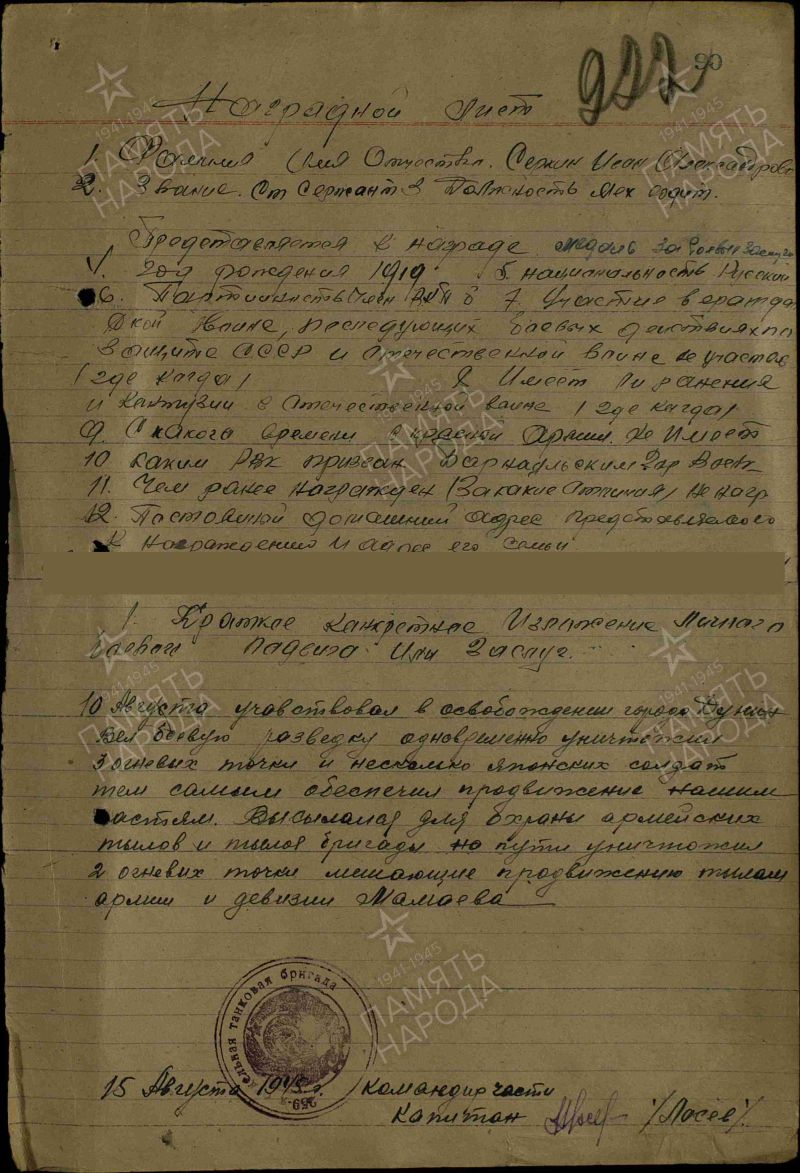 90
927
Наградной лист
1. Фамилия Имя Отчество. Семин Иван Александрово
2. Звание. Ст Сержант 3 Должность мех водит.
Представляется к награде медаль За боевые заслуги
V. год рождения 1919 5. национальность Русский
6. Партийность Член 7. Участие в гражда
ской Воине, последующих боевых действиях по
защите СССР и отечественной воине не участв
/где когда/ 8 Имеет ли ранения
и контузии в отечественной воине /где кагда/
9. С какого времени в красной Армии. Не Имеет
10 каким РВК призван Барнаульским
11. Чем ранее награжден /За какие отличия/ не нагр
12. Постоянный домашний адрес представляемого
к награждению и адрес его семьи
1. Краткое канкретное Изложение Личнаго
боевого падвига Или Заслуг.
10 Августа учавствовал в освобождении города
Вел боевую разведку одновременно уничтожил
3 огневых точки и несколько японских солдат
тем самым обеспечил продвижение нашим
частям. Высылался для охраны армейских
тылов и тылов бригады но пути уничтожил
2 огневих точки мешающие продвижению тылам
армии и девизии Мамаева
259-я отдельная танковая бригада
15 Августа 1945 г. /командир части
капитан /Лосев/
ПАМЯТЬ НАРОДА
1941-1945